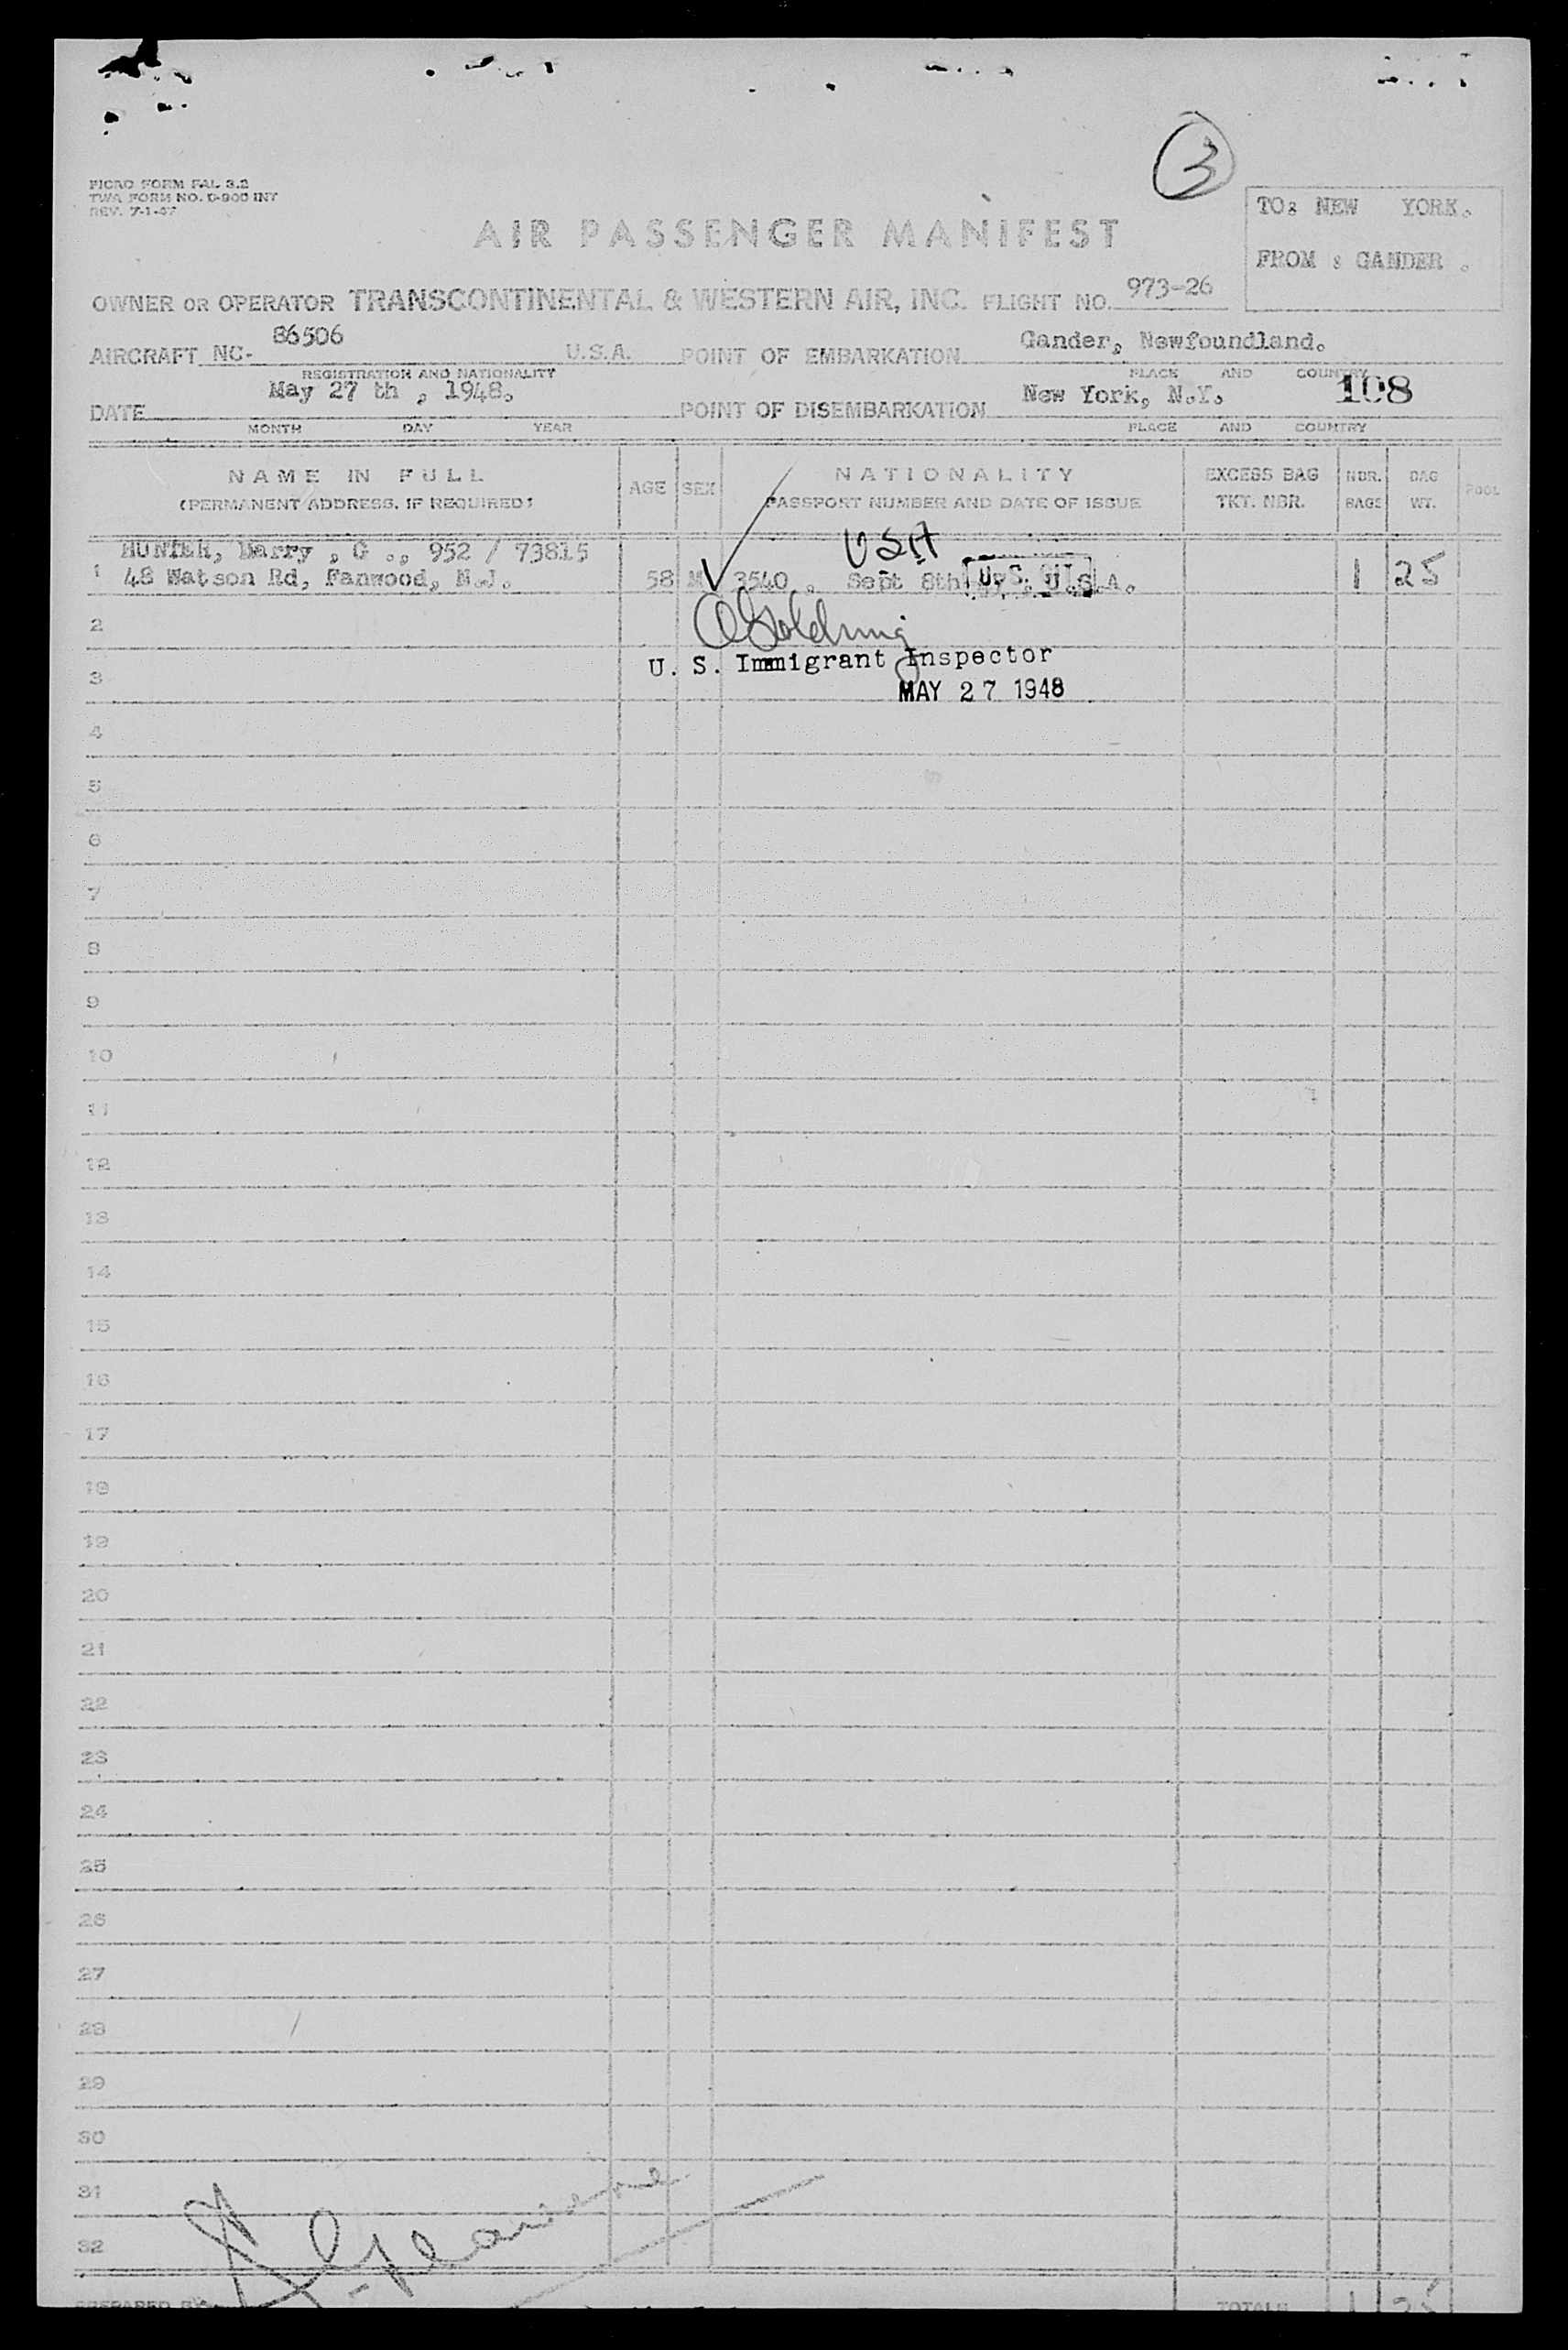 3
PICAO FORM FAL 3.2
TWA FORM NO. D-900 INT
REV. 7-1-47
TO: NEW YORK.
FROM : GANDER .
AIR PASSENGER MANIFEST
OWNER OR OPERATOR TRANSCONTINENTAL & WESTERN AIR, INC. FLIGHT NO. 973-26
AIRCRAFT NC- 86506 U.S.A. POINT OF EMBARKATION Gander, Newfoundland.
REGISTRATION AND NATIONALITY PLACE AND COUNTRY
DATE May 27 th , 1948. POINT OF DISEMBARKATION New York, N.Y. 108
MONTH DAY YEAR PLACE AND COUNTRY
NAME IN FULL AGE SEX NATIONALITY EXCESS BAG NBR. BAG POOL
(PERMANENT ADDRESS, IF REQUIRED) PASSPORT NUMBER AND DATE OF ISSUE TKT. NBR. BAGS WT.
HUNTER, Harry , G ., 952 / 73815 USA
1 48 Watson Rd, Fanwood, N.J. 58 M 3540 . Sept 8th U.S. U.S.A. 1 25
2 Goldring
3 U. S. Immigrant Inspector
MAY 27 1948
4
5
6
7
8
9
10
11
12
13
14
15
16
17
18
19
20
21
22
23
24
25
26
27
28
29
30
31
32
PREPARED BY TOTALS 1 25